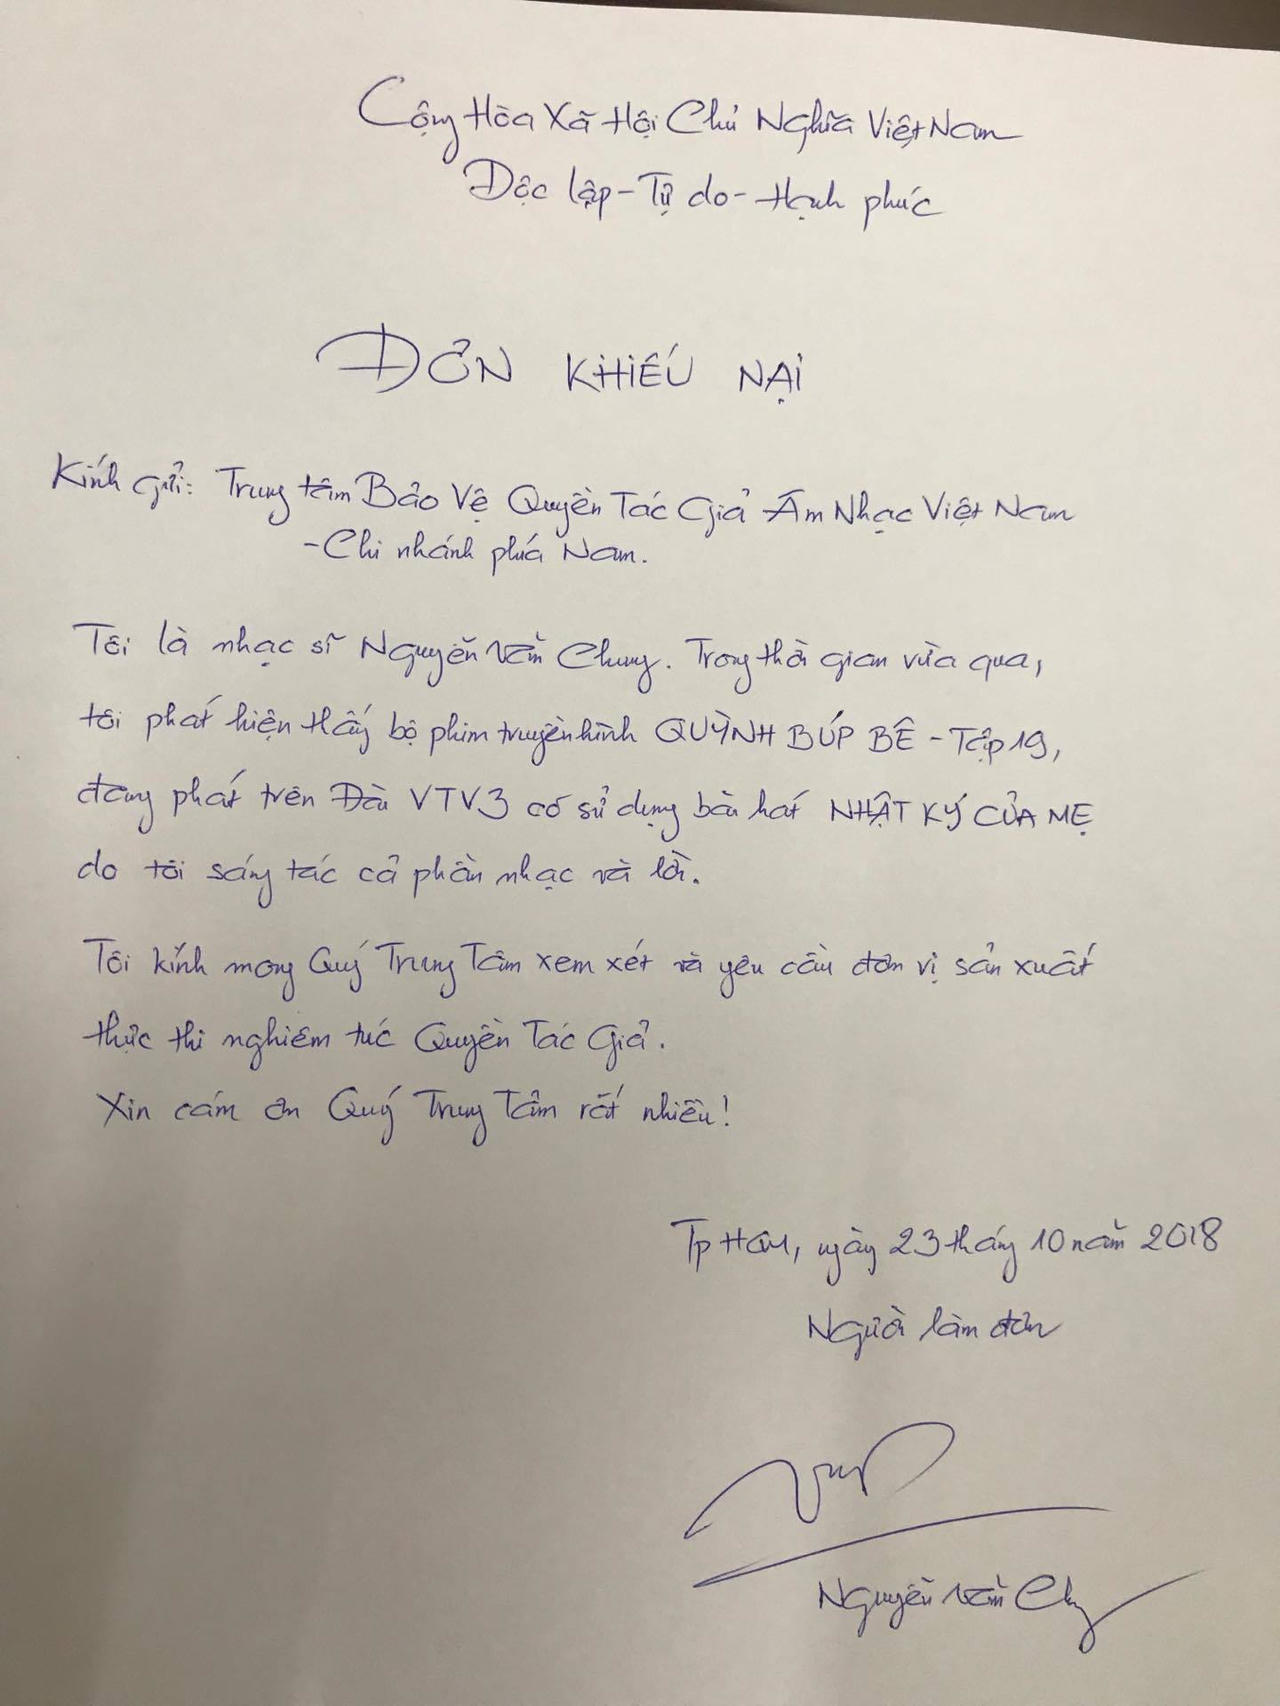 Cộng Hòa Xã Hội Chủ Nghĩa Việt Nam
Độc lập - Tự do - Hạnh phúc
ĐƠN KHIẾU NẠI
Kính gửi: Trung tâm Bảo Vệ Quyền Tác Giả Âm Nhạc Việt Nam
- Chi nhánh phía Nam.
Tôi là nhạc sĩ Nguyễn Văn Chung. Trong thời gian vừa qua,
tôi phát hiện thấy bộ phim truyền hình QUỲNH BÚP BÊ - Tập 19,
đang phát trên Đài VTV3 có sử dụng bài hát NHẬT KÝ CỦA MẸ
do tôi sáng tác cả phần nhạc và lời.
Tôi kính mong Quý Trung Tâm xem xét và yêu cầu đơn vị sản xuất
thực thi nghiêm túc Quyền Tác Giả.
Xin cám ơn Quý Trung Tâm rất nhiều!
Tp HCM, ngày 23 tháng 10 năm 2018
Người làm đơn
Nguyễn Văn Chung